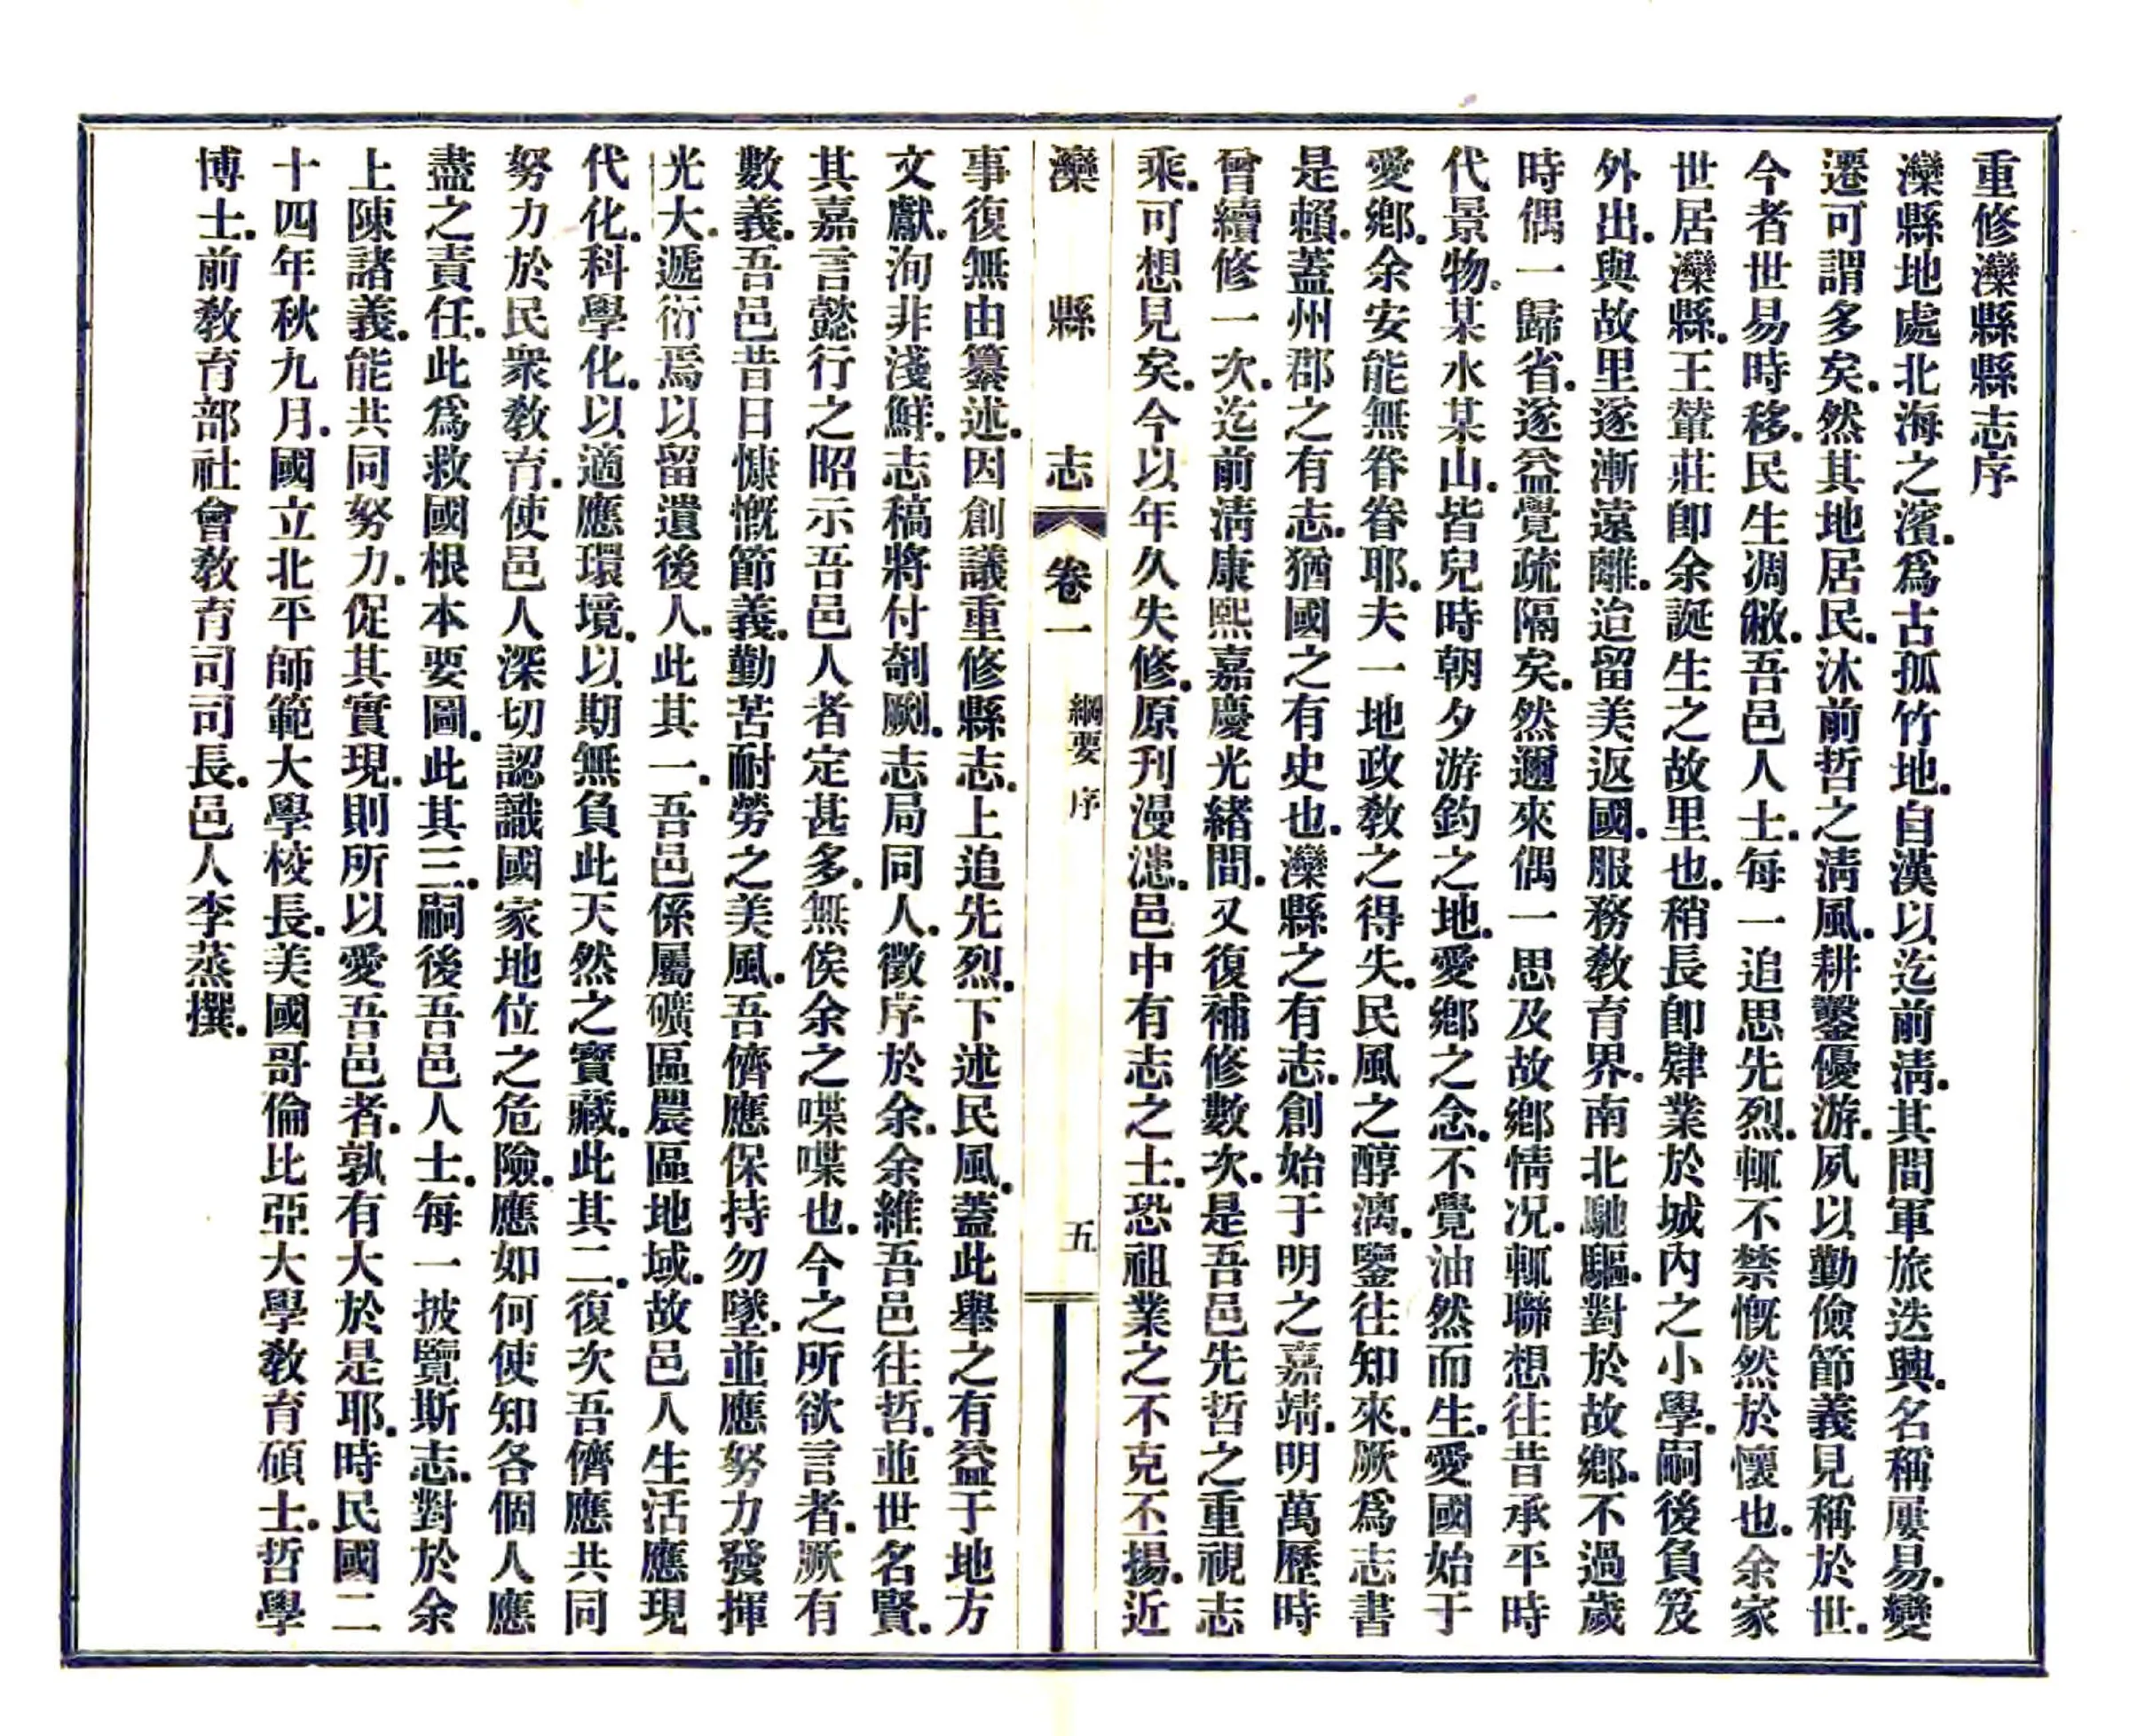 重修灤縣縣志序
灤縣地處北海之濱.爲古孤竹地.自漢以迄前淸.其間軍旅迭興.名稱屢易.變
遷可謂多矣.然其地居民.沐前哲之淸風.耕鑿優游.夙以勤儉節義見稱於世.
今者世易時移.民生凋敝.吾邑人士.每一追思先烈.輒不禁慨然於懷也.余家
世居灤縣.王輦莊卽余誕生之故里也.稍長卽肄業於城內之小學.嗣後負笈
外出.與故里遂漸遠離.迨留美返國.服務敎育界.南北馳驅.對於故鄉.不過歲
時偶一歸省.遂益覺疏隔矣.然邇來偶一思及故鄉情况.輒聯想往昔承平時
代景物.某水某山.皆兒時朝夕游釣之地.愛鄉之念.不覺油然而生.愛國始于
愛鄉.余安能無眷眷耶.夫一地政敎之得失.民風之醇漓.鑒往知來.厥爲志書
是賴.蓋州郡之有志.猶國之有史也.灤縣之有志.創始于明之嘉靖.明萬歷時
曾續修一次.迄前淸康熙嘉慶光緖間.又復補修數次.是吾邑先哲之重視志
乘.可想見矣.今以年久失修.原刊漫漶.邑中有志之士.恐祖業之不克丕揚.近
灤縣志 卷一 綱要 序 五
事復無由纂述.因創議重修縣志.上追先烈.下述民風.蓋此舉之有益于地方
文獻.洵非淺鮮.志稿將付剞劂.志局同人.徵序於余.余維吾邑往哲.並世名賢.
其嘉言懿行之昭示吾邑人者定甚多.無俟余之喋喋也.今之所欲言者.厥有
數義.吾邑昔日慷慨節義.勤苦耐勞之美風.吾儕應保持勿墜.並應努力發揮
光大.遞衍焉以留遺後人.此其一.吾邑係屬礦區農區地域.故邑人生活應現
代化.科學化.以適應環境.以期無負此天然之寶藏.此其二.復次吾儕應共同
努力於民衆敎育.使邑人深切認識國家地位之危險.應如何使知各個人應
盡之責任.此爲救國根本要圖.此其三.嗣後吾邑人士.每一披覽斯志.對於余
上陳諸義.能共同努力.促其實現.則所以愛吾邑者.孰有大於是耶.時民國二
十四年秋九月.國立北平師範大學校長.美國哥倫比亞大學敎育碩士.哲學
博士.前敎育部社會敎育司司長.邑人李蒸撰.